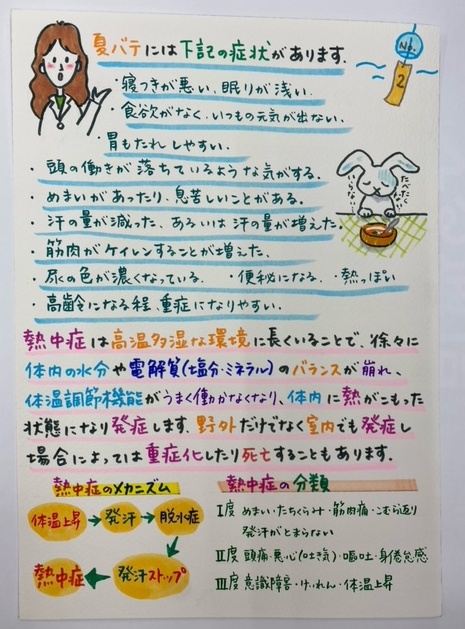 夏バテには下記の症状があります.
No.
2
・寝つきが悪い、眠りが浅い.
・食欲がなく、いつもの元気が出ない.
・胃もたれしやすい.
・頭の働きが落ちているような気がする.
・めまいがあったり、息苦しいことがある.
・汗の量が減った、あるいは汗の量が増えた.
たべたく
ない
・筋肉がケイレンすることが増えた.
・尿の色が濃くなっている. ・便秘になる. ・熱っぽい
・高齢になる程、重症になりやすい.
熱中症は高温多湿な環境に長くいることで、徐々に
体内の水分や電解質(塩分・ミネラル)のバランスが崩れ、
体温調節機能がうまく働かなくなり、体内に熱がこもった
状態になり発症します.野外だけでなく室内でも発症し
場合によっては重症化したり死亡することもあります.
熱中症のメカニズム
体温上昇→発汗→脱水症
熱中症←発汗ストップ
熱中症の分類
I度 めまい・たちくらみ・筋肉痛・こむら返り
発汗がとまらない
II度 頭痛・悪心(吐き気)・嘔吐・身倦怠感
III度 意識障害・けいれん・体温上昇